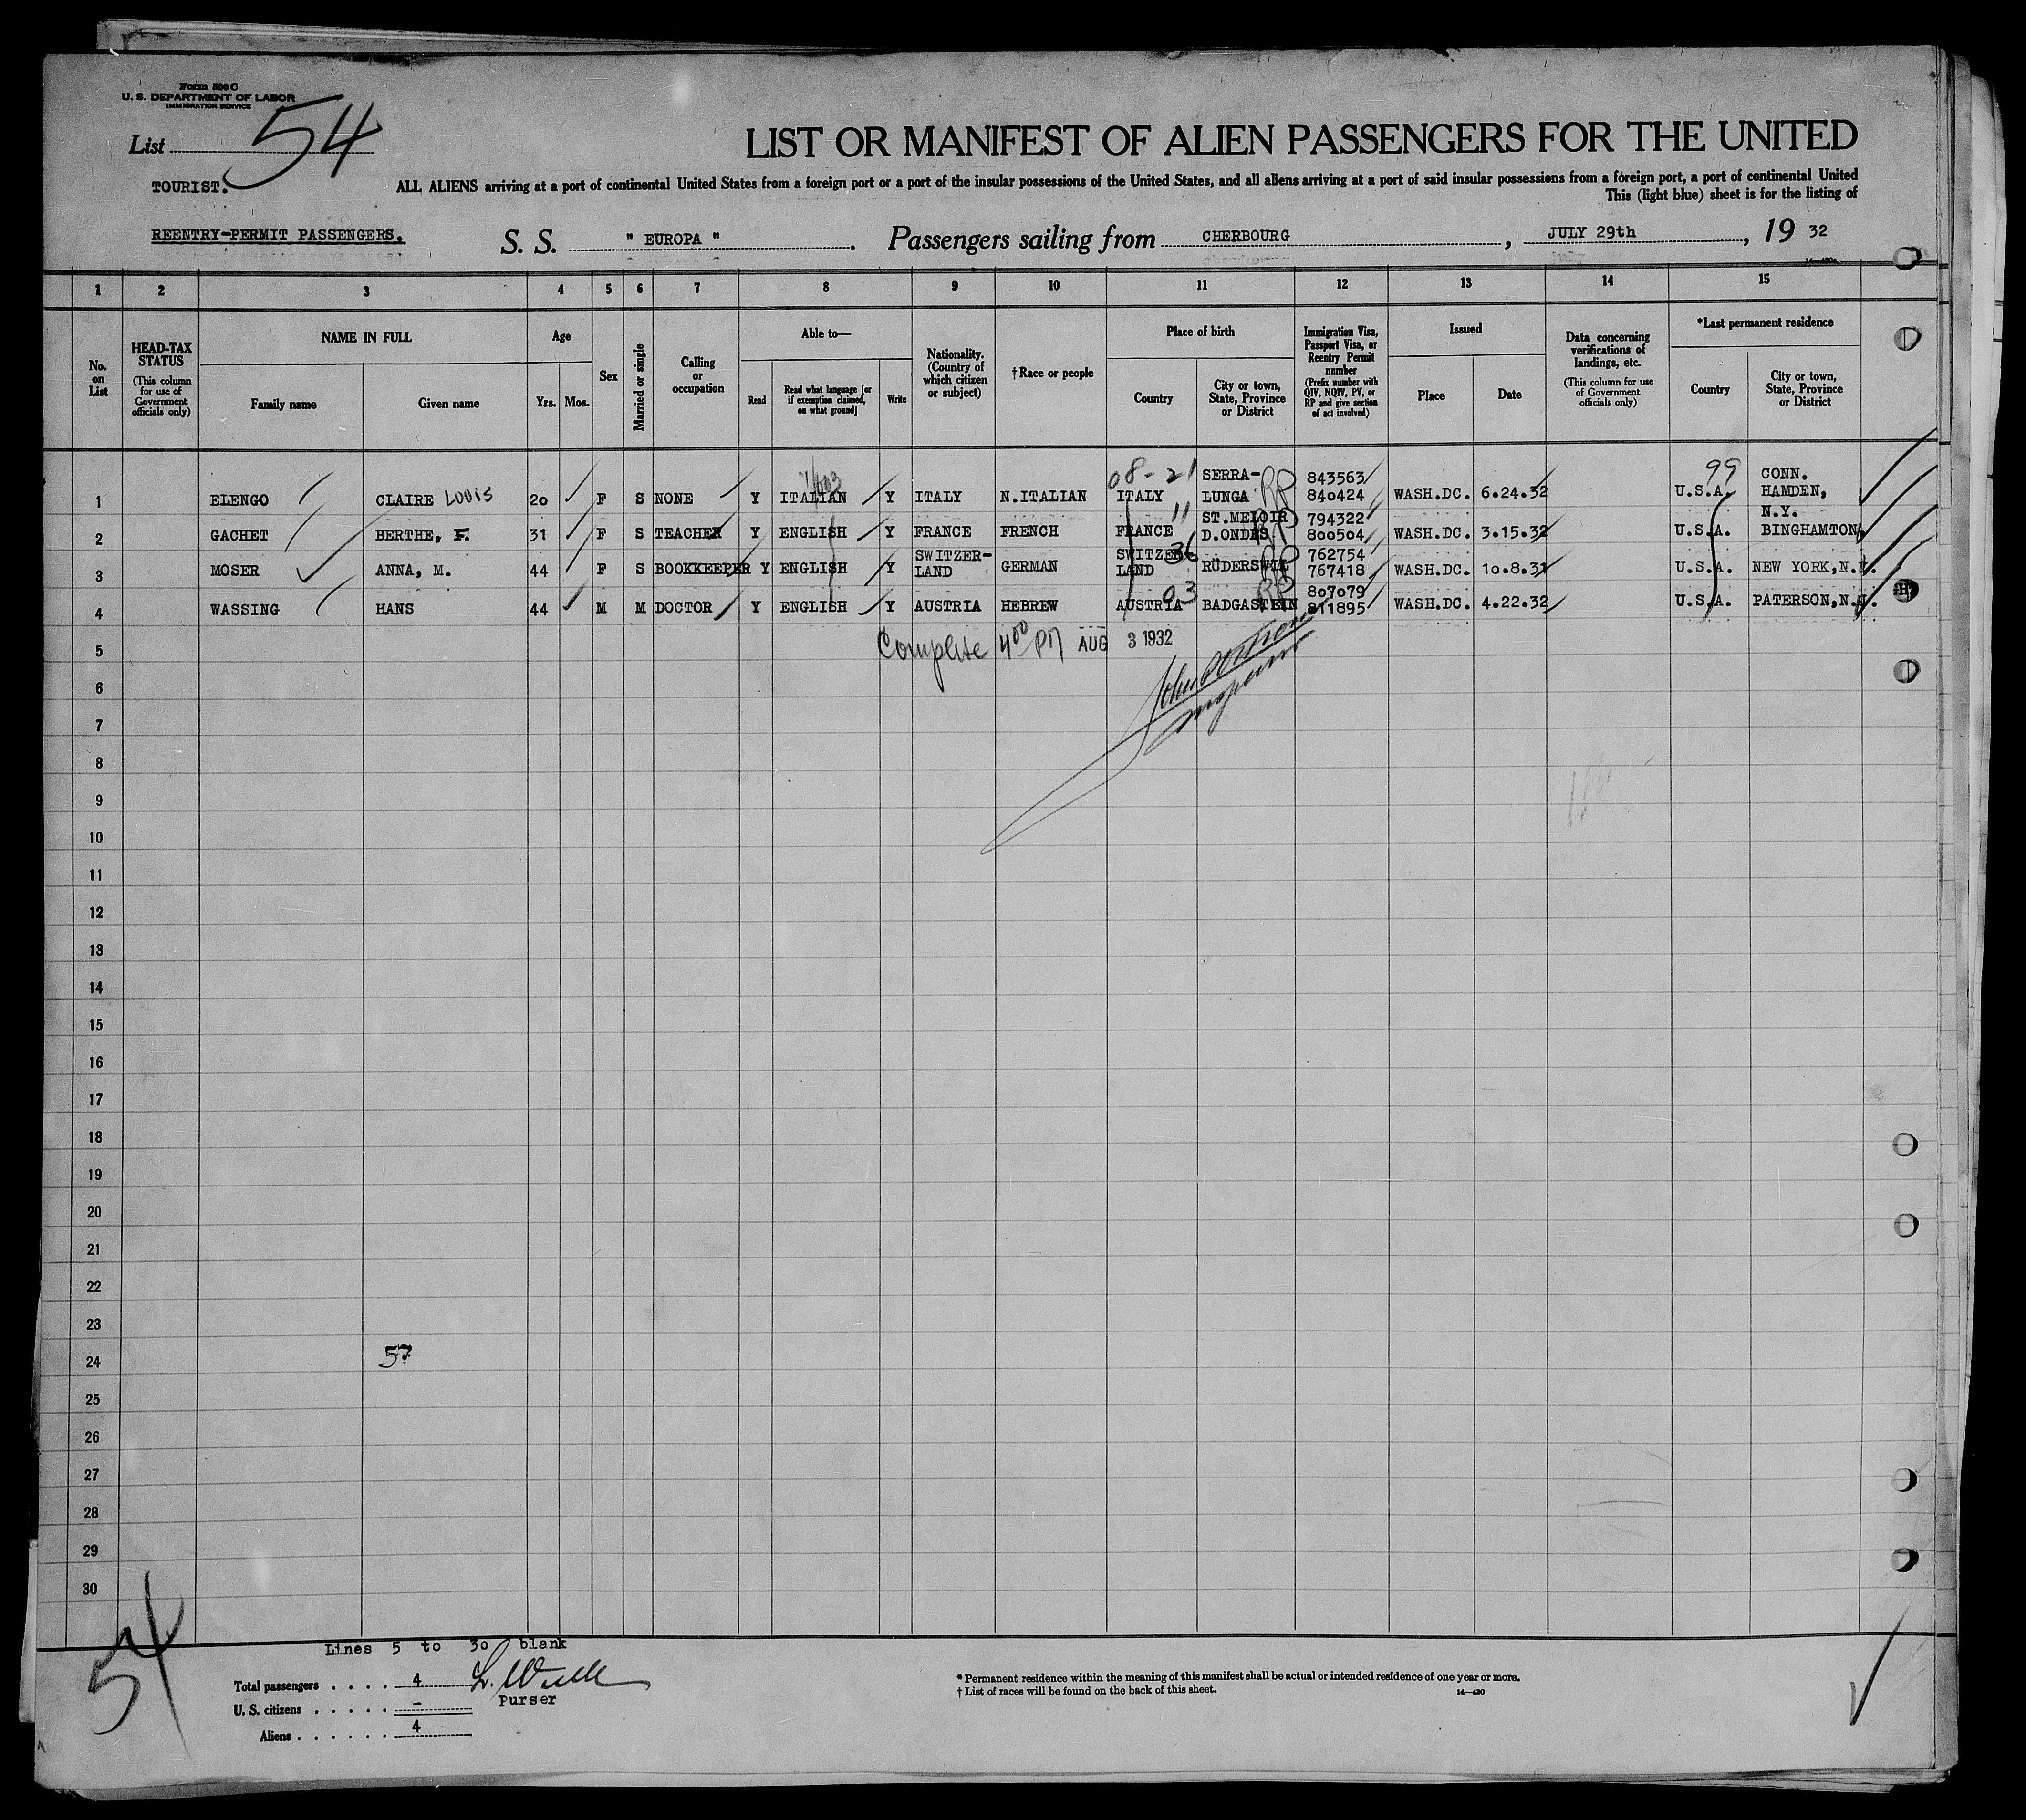 Form 500 C
U. S. DEPARTMENT OF LABOR
IMMIGRATION SERVICE
List 54
LIST OR MANIFEST OF ALIEN PASSENGERS FOR THE UNITED
TOURIST.
ALL ALIENS arriving at a port of continental United States from a foreign port or a port of the insular possessions of the United States, and all aliens arriving at a port of said insular possessions from a foreign port, a port of continental United
This (light blue) sheet is for the listing of
REENTRY-PERMIT PASSENGERS.
S. S. " EUROPA ". Passengers sailing from CHERBOURG, JULY 29th, 19 32
1 2 3 4 5 6 7 8 9 10 11 12 13 14 15
No. on List
HEAD-TAX STATUS
(This column for use of Government officials only)
NAME IN FULL
Family name
Given name
Age
Yrs. Mos.
Sex
Married or single
Calling or occupation
Able to—
Read
Read what language [or if exemption claimed, on what ground]
Write
Nationality. (Country of which citizen or subject)
†Race or people
Place of birth
Country
City or town, State, Province or District
Immigration Visa, Passport Visa, or Reentry Permit number
(Prefix number with QIV, NQIV, PV, or RP and give section of act involved)
Issued
Place
Date
Data concerning verifications of landings, etc.
(This column for use of Government officials only)
*Last permanent residence
Country
City or town, State, Province or District
08-21 SERRA- 843563 99 CONN.
1 ELENGO CLAIRE LOUIS 20 F S NONE Y ITALIAN Y ITALY N.ITALIAN ITALY LUNGA RP 840424 WASH.DC. 6.24.32 U.S.A. HAMDEN,
11 ST.MELOIR 794322 N.Y.
2 GACHET BERTHE, F. 31 F S TEACHER Y ENGLISH Y FRANCE FRENCH FRANCE D.ONDES RP 800504 WASH.DC. 3.15.32 U.S.A. BINGHAMTON,
SWITZER- SWITZER 36 762754
3 MOSER ANNA, M. 44 F S BOOKKEEPER Y ENGLISH Y LAND GERMAN LAND RUDERSWIL RP 767418 WASH.DC. 10.8.31 U.S.A. NEW YORK,N.Y.
03 807079
4 WASSING HANS 44 M M DOCTOR Y ENGLISH Y AUSTRIA HEBREW AUSTRIA BADGASTEIN RP 811895 WASH.DC. 4.22.32 U.S.A. PATERSON,N.J.
Complete 4⁰⁰ PM AUG 3 1932
5
Inspector
6
7
8
9
10
11
12
13
14
15
16
17
18
19
20
21
22
23
24 57
25
26
27
28
29
30
54
Lines 5 to 30 blank
Total passengers . . . . 4
Purser
U. S. citizens . . . . . –
Aliens . . . . . . 4
* Permanent residence within the meaning of this manifest shall be actual or intended residence of one year or more.
† List of races will be found on the back of this sheet.
14—430